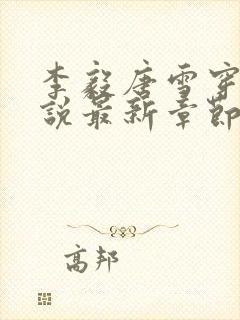 李毅唐雪穿
說最新章節
高邦